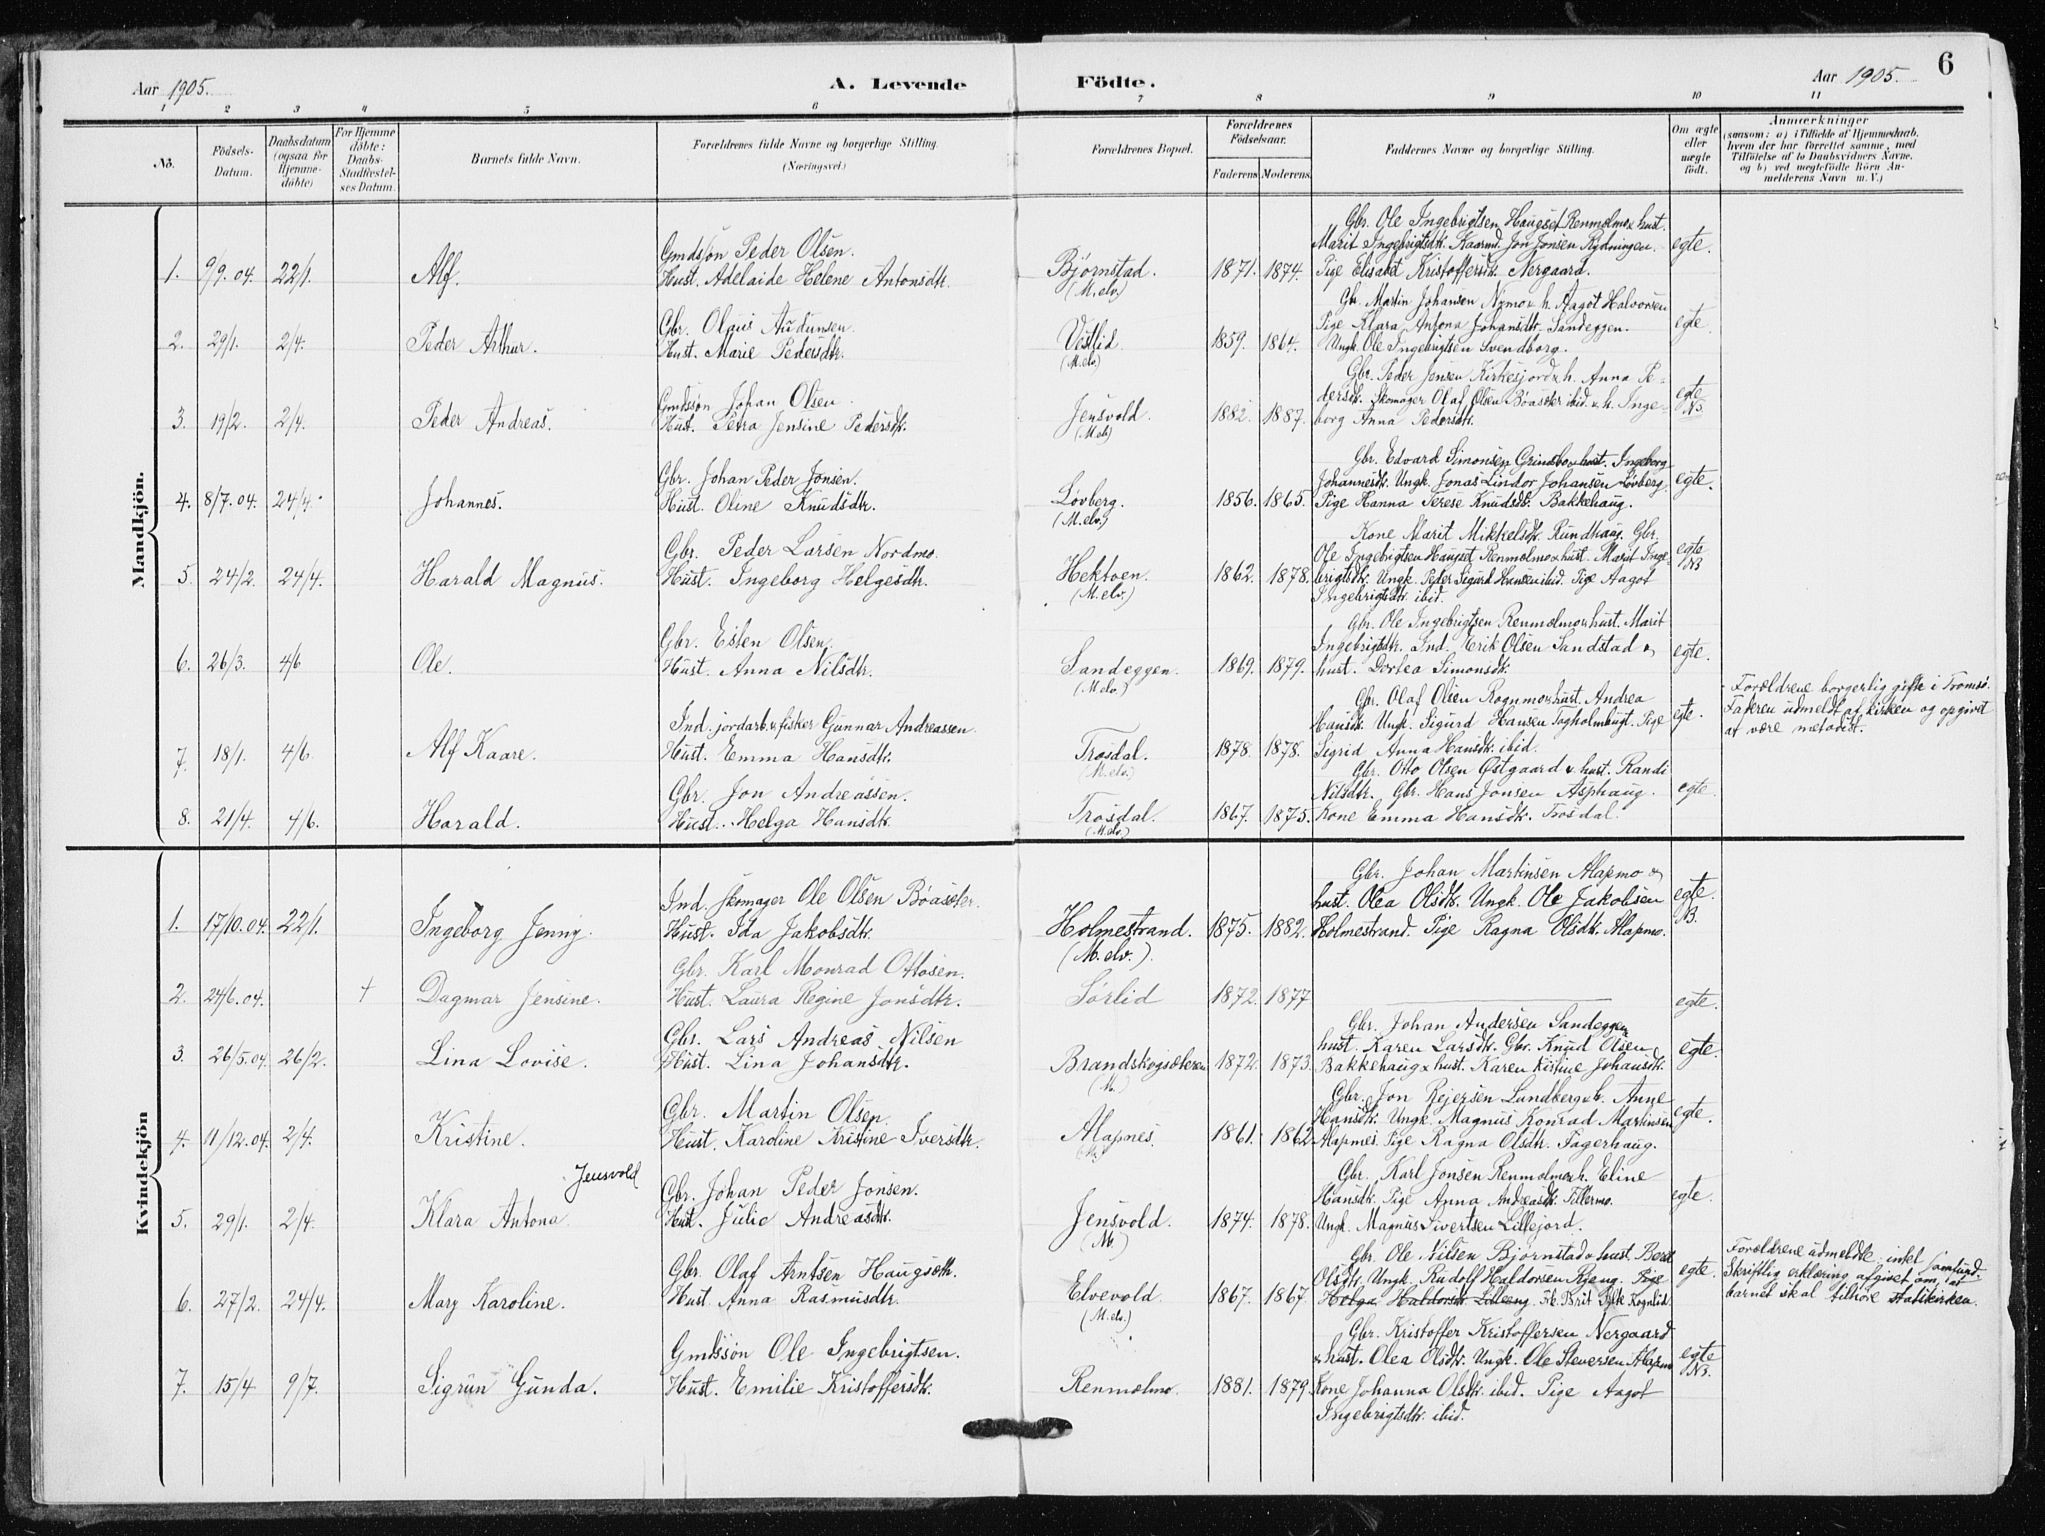 6
Aar 1905. A. Levende Födte. Aar 1905.
1 2 3 4 5 6 7 8 9 10 11
No.
Födsels-Datum.
Daabsdatum (ogsaa for Hjemme-døbte)
For Hjemme døbte: Daabs-Stadfæstel-ses Datum.
Barnets fulde Navn.
Forældrenes fulde Navne og borgerlige Stilling.
(Næringsvei.)
Forældrenes Bopæl.
Forældrenes Födselsaar.
Faderens Moderens.
Faddernes Navne og borgerlige Stilling.
Om ægte eller uægte födt.
Anmærkninger
(saasom: a) i Tilfælde af Hjemmedaab, hvem der har forrettet samme, med Tilföielse af to Daabsvidners Navne, og b) ved uægtefödte Börn An-melderens Navn m. V.)
Mandkjön.
Gbr. Ole Ingebrigtsen Haugset Renmælmo & hust.
Gmdssön Peder Olsen. Marit Ingebrigtsdtr. Kaarmd. Jon Jonsen Rydningen. egte.
1. 9/9.04. 22/1. Alf. Hust. Adelaide Helene Antonsdtr. Bjørnstad. 1871. 1874. Pige Elisabet Kristoffersdtr. Nergaard.
(M.elv.) Gbr. Martin Johansen Nymo & h. Aagot Halvorsen
Gbr. Olaus Audunsen. Pige Klara Antona Johansdtr. Sandeggen. egte.
2. 29/1. 2/4. Peder Arthur. Hust. Marie Pedersdtr. Vestlid 1859. 1864. Ungk. Ole Ingebrigtsen Svendborg.
(M.elv) Gbr. Peder Jensen Kirkesjord & h. Anna Pe-
Gmdssön Johan Olsen. dersdtr. Skomager Olaf Olsen Böasæter ibid. & h. Inge- egte
3. 19/2. 2/4. Peder Andreas. Hust. Petra Jensine Pedersdtr. Jensvold. 1882. 1887. borg Anna Pedersdtr. NB.
(M.elv)
Gbr. Edvard Simonsen Grindbo & hust. Ingeborg
Gbr. Johan Peder Jonsen. Johannesdtr. Ungk. Jonas Lindor Johansen Løvberg. egte.
4. 8/7.04. 24/4. Johannes. Hust. Oline Knudsdtr. Løvberg. 1856. 1865. Pige Hanna Terese Knudsdtr. Bakkehaug.
(M.elv.) Kone Marit Mikkelsdtr. Rundhaug. Gbr.
Gbr. Peder Larsen Nordmo. Ole Ingebrigtsen Haugset Renmælmo & hust. Marit Inge- egte
5. 24/2. 24/4. Harald Magnus. Hust. Ingeborg Helgesdtr. Hektoen. 1862. 1878. brigtsdtr. Ungk. Peder Sigurd Hansen ibid. Pige Aagot NB
(M.elv.) Ingebrigtsdtr. ibid.
Gbr. Ole Ingebrigtsen Renmælmo & hust. Marit
Gbr. Esten Olsen. Ingebrigtsdtr. Ind. Erik Olsen Sandstad & egte.
6. 26/3. 4/6 Ole. Hust. Anna Nilsdtr. Sandeggen. 1869. 1879. hust. Dortea Simonsdtr.
(M.elv.) Gbr. Olaf Olsen Rognmo & hust. Andrea
Ind. jordarb. & fisker Gunnar Andreassen Hansdtr. Ungk. Sigurd Hansen Fagholmbugt. Pige egte.
7. 18/1. 4/6. Alf Kaare. Hust. Emma Hansdtr. Trøsdal. 1878. 1878. Sigrid Anna Hansdtr. ibid.
(M.elv.)
Forældrene borgerlig gifte i Tromsø.
Faderen udmeldt af kirken og opgivet
at være metodist.
Gbr. Otto Olsen Østgaard & hust. Randi
Gbr. Jon Andreassen. Nilsdtr. Gbr. Hans Jonsen Asphaug. egte.
8. 21/4. 4/6. Harald. Hust. Helga Hansdtr. Trøsdal. 1867. 1875. Kone Emma Hansdtr. Trøsdal.
(M.elv.)
Kvindekjön
Gbr. Johan Martinsen Alapmo &
Ind. skomager Ole Olsen Böasæter. hust. Olea Olsdtr. Ungk. Ole Jakobsen egte.
1. 17/10.04. 22/1. Ingeborg Jenny. Hust. Ida Jakobsdtr. Holmestrand. 1875. 1882. Holmestrand. Pige Ragna Olsdtr. Alapmo. NB.
(M.elv.).
Gbr. Karl Monrad Ottosen.
2. 24/6.04. † Dagmar Jensine. Hust. Laura Regine Jonsdtr. Sørlid 1872. 1877 egte.
Gbr. Johan Andersen Sandeggen
Gbr. Lars Andreas Nilsen hust. Karen Larsdtr. Gbr. Knud Olsen egte.
3. 26/5.04 26/2. Lina Lovise. Hust. Lina Johansdtr. Brandskogsæteren 1872. 1873. Bakkehaug & hust. Karen Kistine Johansdtr.
(M.) Gbr. Jon Rejersen Lundberg & h. Anne
Gbr. Martin Olsen. Hansdtr. Ungk. Magnus Konrad Martinsen egte.
4. 11/12.04. 2/4. Kristine. Hust. Karoline Kristine Iversdtr. Alapnes. 1861. 1862 Alapmes. Pige Ragna Olsdtr. Fagerhaug.
(M.)
Jensvold
Gbr. Karl Jonsen Renmælmo & h. Eline
Gbr. Johan Peder Jonsen. Hansdtr. Pige Anna Andreasdtr. Fillermo. egte.
5. 29/1. 2/4. Klara Antona. Hust. Julie Andreasdtr. Jensvold. 1874. 1878. Ungk. Magnus Sivertsen Lillejord.
(M.)
Gbr. Ole Nilsen Bjørnstad & hust. Berit
Gbr. Olaf Arntsen Haugseth. Olsdtr. Ungk. Rudolf Haldorsen Rjeng. Pige egte.
6. 27/2. 24/4. Mary Karoline. Hust. Anna Rasmusdtr. Elvevold. 1867. 1867. Helga Haldorsdtr. Lilleng.
(M.elv.)
Forældrene udmeldte; intet samfund.
Skriftlig erklæring afgivet om, at
barnet skal tilhøre statskirken.
Gbr. Kristoffer Kristoffersen Nergaard
Gmdssön Ole Ingebrigtsen. & hust. Olea Olsdtr. Ungk. Ole Steversen Alapmo egte
7. 15/4 9/7. Sigrun Gunda. Hust. Emilie Kristoffersdtr. Renmælmo. 1881. 1879 Kone Johanna Olsdtr. ibid. Pige Aagot NB.
Ingebrigtsdtr. ibid.